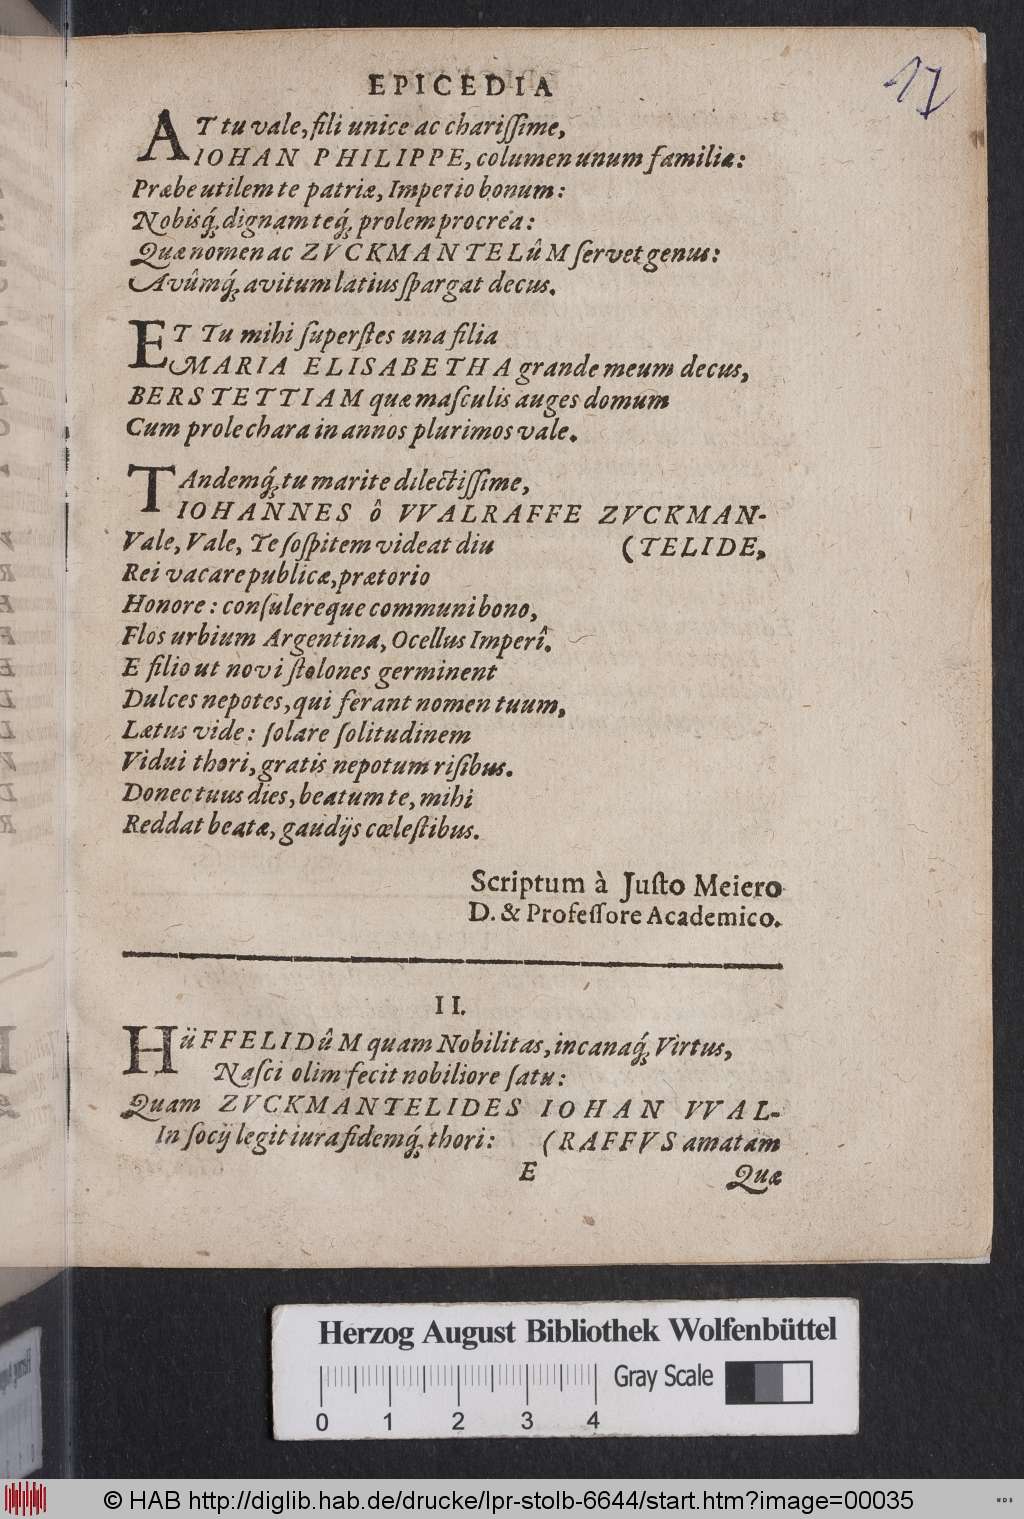 17
EPICEDIA
AT tu vale, fili unice ac chariſſime,
IOHAN PHILIPPE, columen unum familiæ:
Præbe utilem te patriæ, Imperio bonum:
Nobisq́ꝫ dignam teq́ꝫ prolem procrea:
Quæ nomen ac ZVCKMANTELûM ſervet genus:
Avûmq́ꝫ avitum latius ſpargat decus.
ET Tu mihi ſuperſtes una filia
MARIA ELISABETHA grande meum decus,
BERSTETTIAM quæ maſculis auges domum
Cum prole chara in annos plurimos vale.
TAndemq́ꝫ tu marite dilectiſſime,
IOHANNES ô VVALRAFFE ZVCKMAN-
Vale, Vale, Te ſoſpitem videat diu (TELIDE,
Rei vacare publicæ, prætorio
Honore: conſulereque communi bono,
Flos urbium Argentina, Ocellus Imperî.
E filio ut novi ſtolones germinent
Dulces nepotes, qui ferant nomen tuum,
Lætus vide: ſolare ſolitudinem
Vidui thori, gratis nepotum riſibus.
Donec tuus dies, beatum te, mihi
Reddat beatæ, gaudijs cœleſtibus.
Scriptum à Juſto Meiero
D. & Profeſſore Academico.
II.
HüFFELIDûM quam Nobilitas, incanaq́ꝫ Virtus,
Naſci olim fecit nobiliore ſatu:
Quam ZVCKMANTELIDES IOHAN VVAL-
In ſocij legit iura fidemq́ꝫ thori: (RAFFVS amatam
E Quæ
Herzog August Bibliothek Wolfenbüttel
Gray Scale
0 1 2 3 4
© HAB http://diglib.hab.de/drucke/lpr-stolb-6644/start.htm?image=00035
WDB